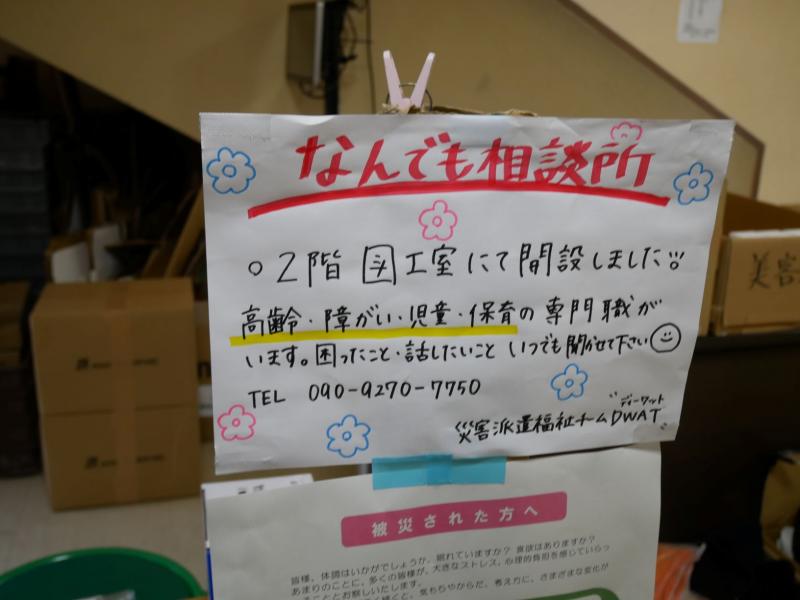 なんでも相談所
○2階 図工室にて開設しました!!
高齢・障がい・児童・保育の専門職が
います。困ったこと・話したいこと いつでも聞かせて下さい
TEL 090-9270-7750
"ディーワット"
災害派遣福祉チームDWAT
美容
被災された方へ
皆様、体調はいかがでしょうか。眠れていますか? 食欲はありますか?
あまりのことに、多くの皆様が、大きなストレス、心理的負担を感じていらっ
ることとお察しいたします。
気もちやからだ、考え方に、さまざまな変化が